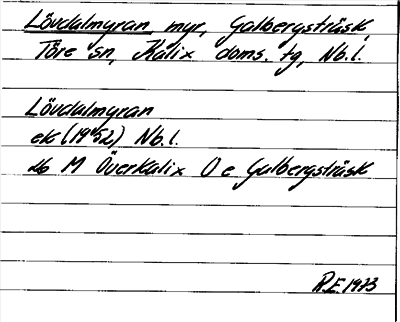 Lövdalmyran, myr, Galbergsträsk,
Töre sn, Kalix doms. tg, Nb.l.
Lövdalmyran
ek (1952) Nb.l.
26 M Överkalix O e Galbergsträsk
R.E. 1983